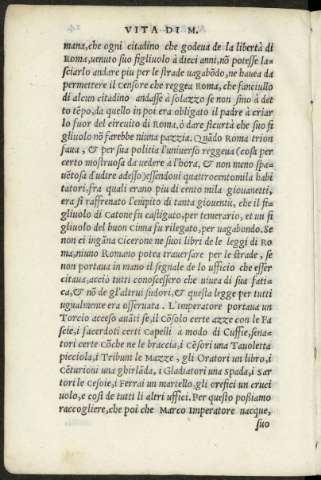 VITA DI M.
mana, che ogni citadino che godeua de la libertà di
Roma, uenuto suo figliuolo à dieci anni, nō potesse la-
sciarlo andare piu per le strade uagabōdo, ne hauta da
permettere il Censore che reggea Roma, che fanciullo
di alcun citadino andasse à solazzo se non sino à det
to tēpo, da quello in poi era obligato il padre à criar
lo fuor del circuito di Roma, ò dare sicurtà che suo fi
gliuolo nō farebbe niuna pazzia. Quādo Roma trion
faua, & per sua politia l'uniuerso reggeua (cosa per
certo mostruosa da uedere à l'hora, & non meno spa-
uētosa d'udire adesso) essendoui quattrocentomila habi
tatori, fra quali erano piu di cento mila giouanetti,
era sì raffrenato l'empito di tanta giouentù, che il fi-
gliuolo di Catone fu castigato, per temerario, et un fi
gliuolo del buon Cinna fu rilegato, per uagabondo. Se
non ci ingāna Cicerone ne suoi libri de le leggi di Ro
ma, niuno Romano potea trauersare per le strade, se
non portaua in mano il segnale de lo ufficio che esser
citaua, acciò tutti conoscessero che uiuea di sua fatti-
ca, & nō de gl'altrui sudori, & questa legge per tutti
ugualmente era osseruata. L'imperatore portaua un
Torcio acceso auāti se, li Cōsolo certe azze con le Fa
scie, i sacerdoti certi Capelli a modo di Cuffie, sena-
tori certe Cōche ne le braccia, i Cēsori una Tauoletta
picciola, i Tribuni le Mazze, gli Oratori un libro, i
Cēturioni una ghirlāda, i Gladiatori una spada, i Sar
tori le Cesoie, i Ferrai un martello, gli orefici un cruci
uolo, e così de tutti li altri uffici. Per questo poßiamo
raccogliere, che poi che Marco Imperatore nacque,
suo